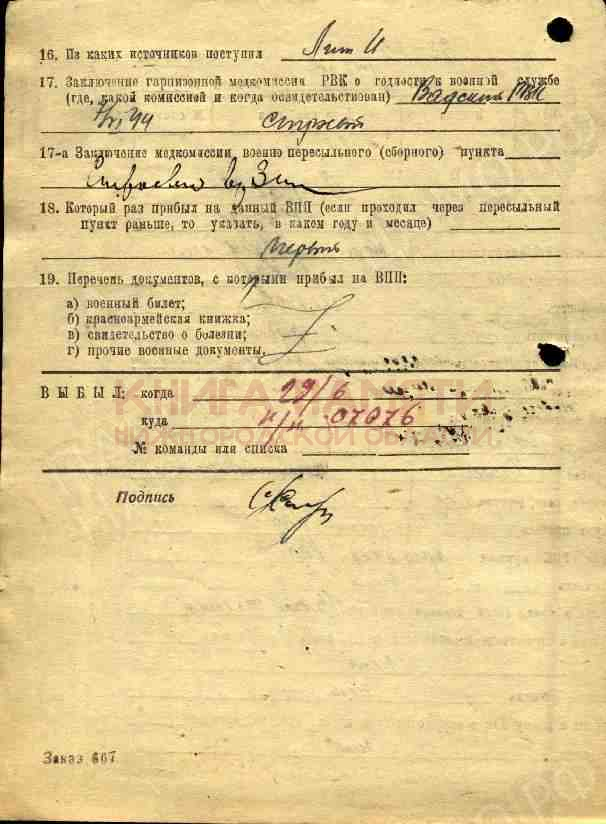 16. Из каких источников поступил
17. Заключение гарнизонной медкомиссии РВК о годности к военной службе
(где, какой комиссией и когда освидетельствован) Вадский РВК
17-а Заключение медкомиссии военно пересыльного (сборного) пункта
18. Который раз прибыл на данный ВПП (если проходил через пересыльный
пункт раньше, то указать, в каком году и месяце)
первый
19. Перечень документов, с которыми прибыл на ВПП:
а) военный билет;
б) красноармейская книжка;
в) свидетельство о болезни;
г) прочие военные документы.
ВЫБЫЛ: когда 29/6
КНИГА ПАМЯТИ
куда п/п 07076
НИЖЕГОРОДСКОЙ ОБЛАСТИ
№ команды или списка
Подпись
Заказ 667